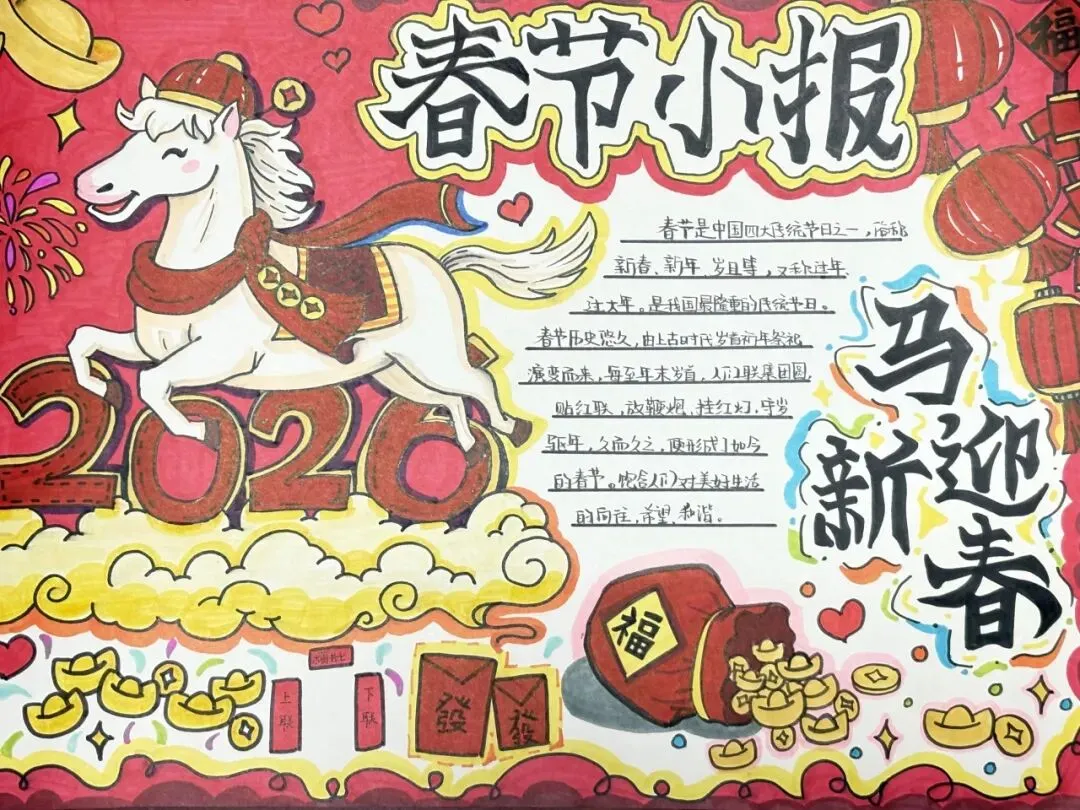 春节小报
福
春节是中国四大传统节日之一，俗称
新春、新年、岁旦等，又称过年
过大年。是我国最隆重的传统节日。
春节历史悠久，由上古时代岁首祈年祭祀
演变而来，每至年末岁首，人们联集团圆
贴红联，放鞭炮，挂红灯，守岁
年，久而久之，便形成了如今
的春节。饱含人们对美好生活
的向往，希望，和谐。
马
新迎
春
2026
福
上联
下联
發
發